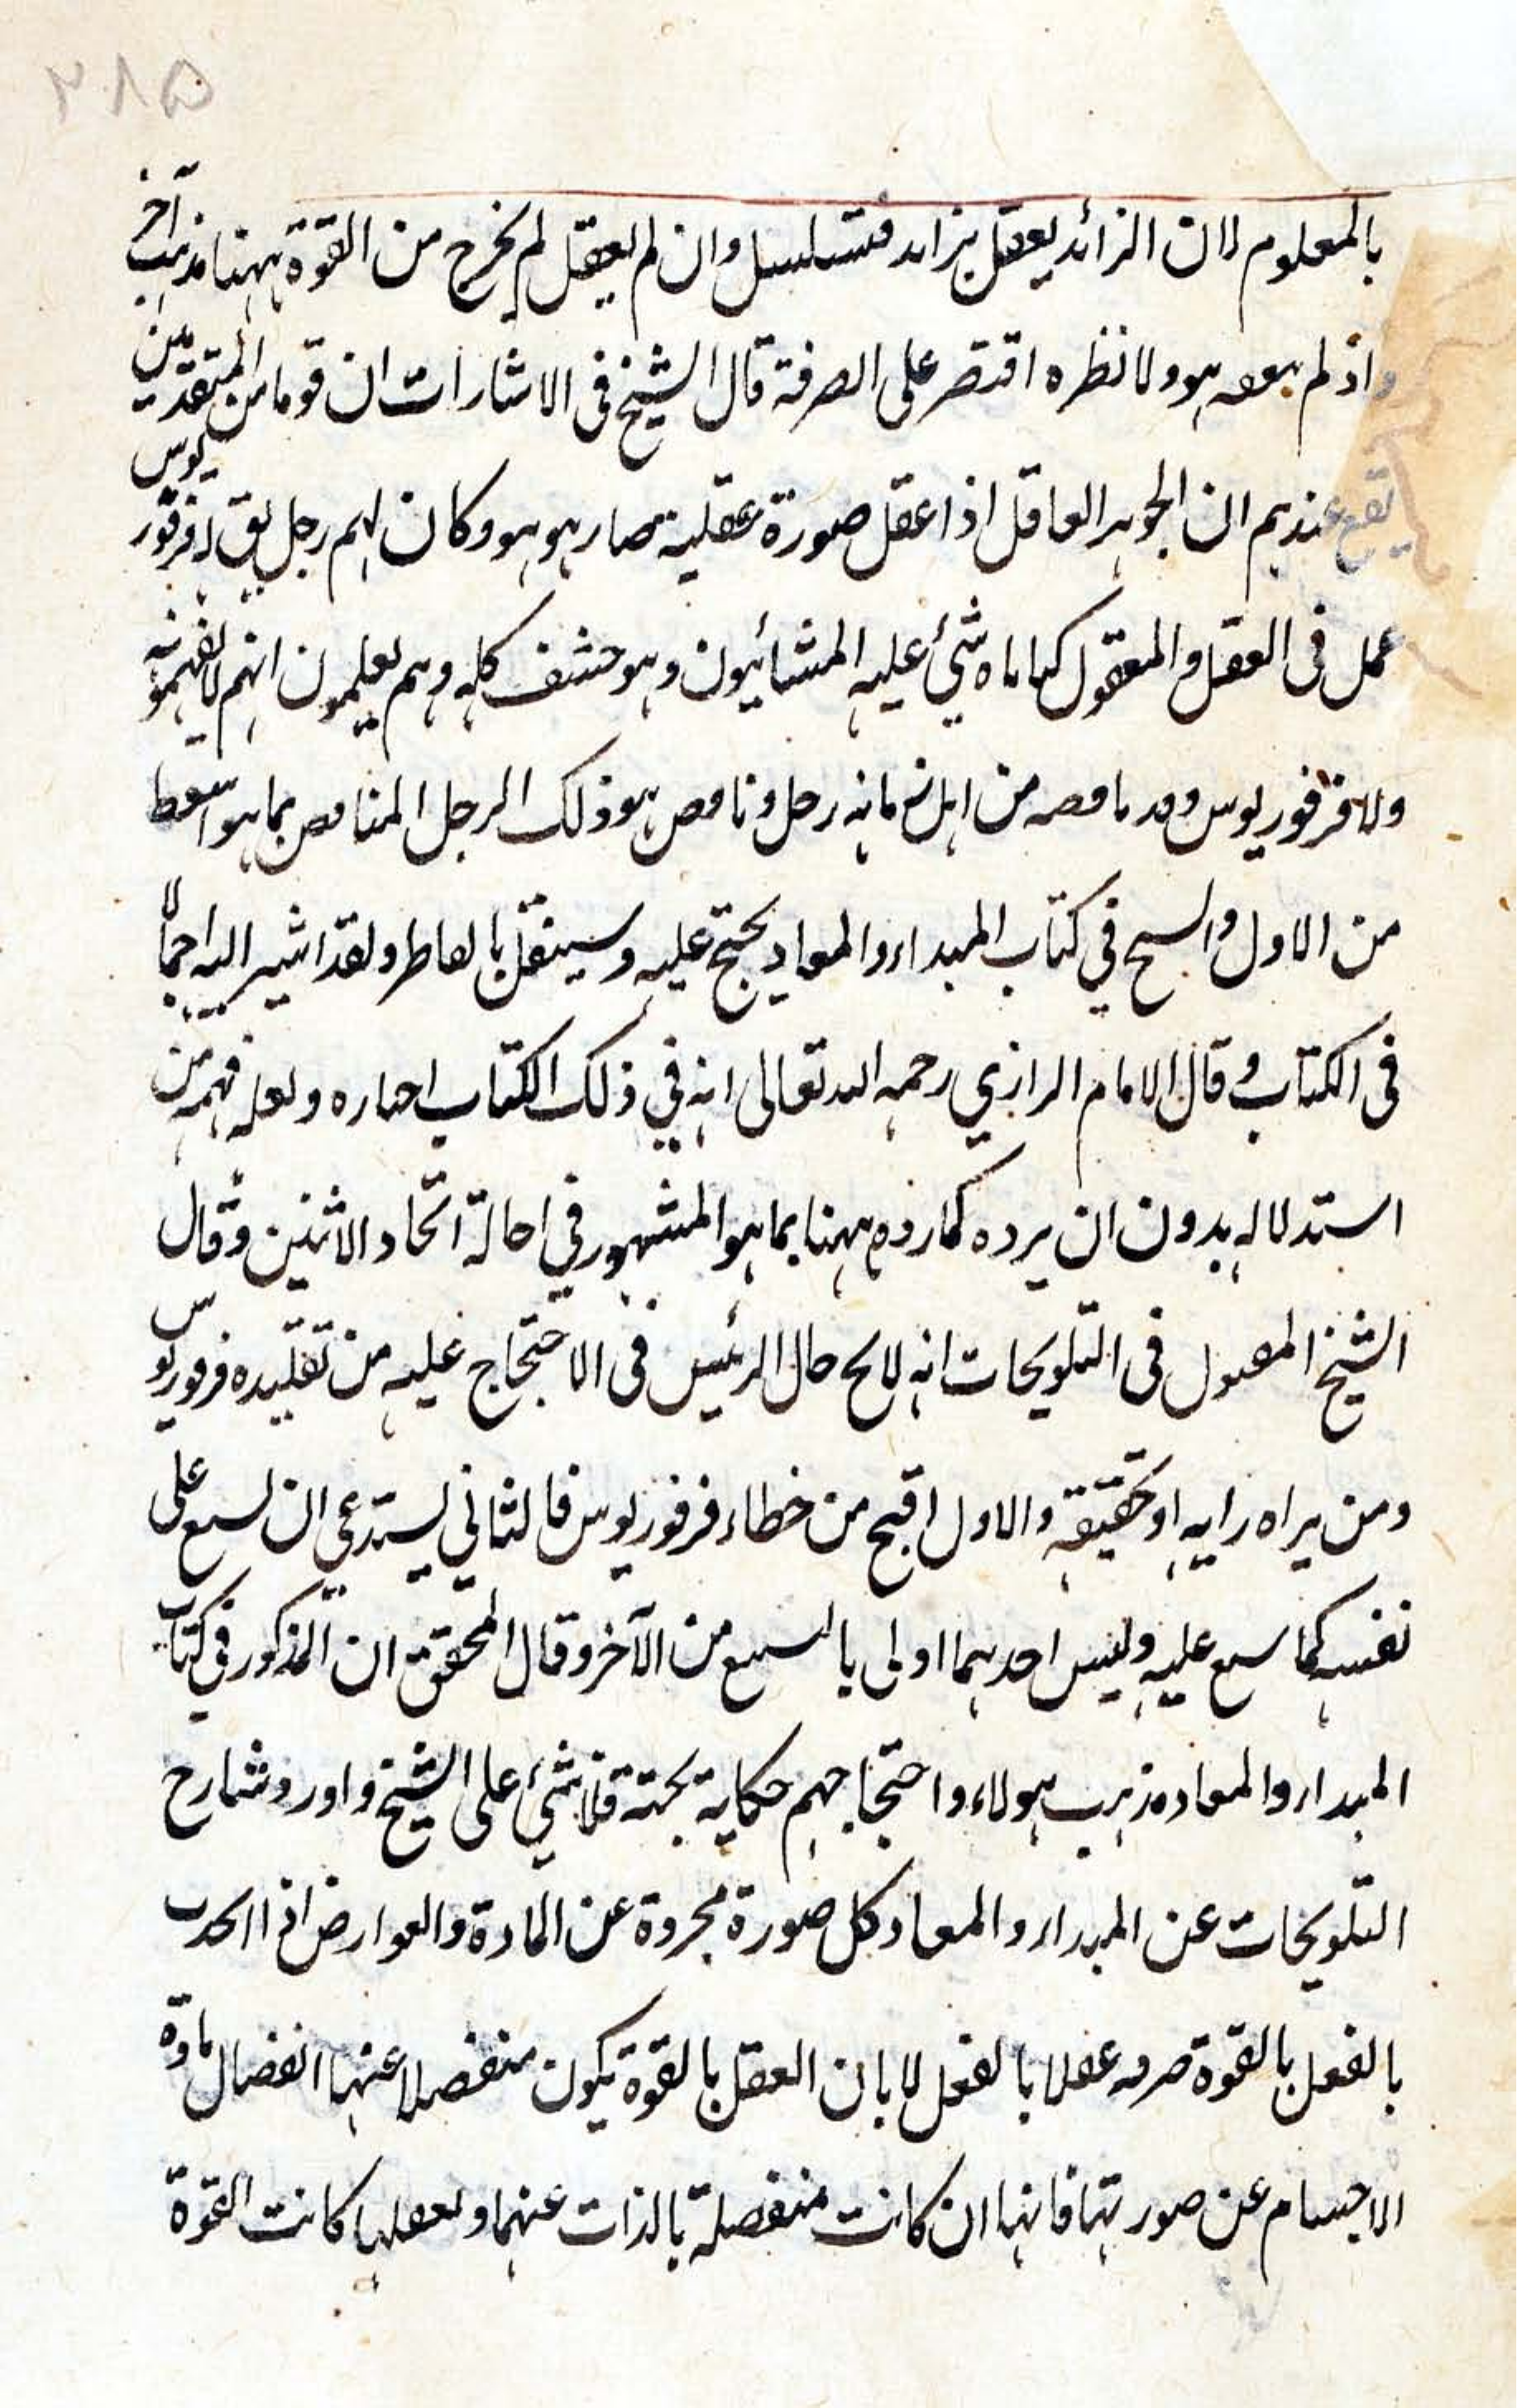 ٢٨٥
بالمعلوم لان الزائد يعقل بزايد فتسلسل وان لم يعقل لم يخرج من القوة ههنا مذهب آخر
واذ لم هو ولا نظره اقتصر على الصرفة قال الشيخ فى الاشارات ان قوما من المتقدمين
يقع عندهم ان الجوهر العاقل اذا عقل صورة عقلية صار هو هو وكان لهم رجل يق له فرفوريوس
عمل فى العقل والمعقول كتابا شئ عليه المشائيون وهو حشف كله وهم يعلمون انهم لا يفهمونه
ولا فرفوريوس وقد ناقضه من اهل زمانه رجل وناقض هو ذلك الرجل المناقض بما هو اسقط
من الاول والشيخ في كتاب المبداء والمعاد يحتج عليه وسينقل بالفاظه ولقد اشير اليه اجمالا
فى الكتاب وقال الامام الرازي رحمه الله تعالى انه في ذلك الكتاب اختاره ولعله فهمه من
استدلاله بدون ان يرده كما رده ههنا بما هو المشهور في احالة اتحاد الاثنين وقال
الشيخ المقتول فى التلويحات انه لا يخ حال الرئيس فى الاحتجاج عليه من تقليده فرفوريوس
ومن يراه رايه او تحقيقه والاول اقبح من خطاء فرفوريوس فالثاني يستدعي ان يشنع على
نفسه كما شنع عليه وليس احدهما اولى بالتشنيع من الآخر وقال المحقق ان المذكور في كتاب
المبداء والمعاد مذهب هولاء واحتجاجهم حكاية بحتة فلا شئ على الشيخ واورد شارح
التلويحات عن المبداء والمعاد كل صورة مجردة عن المادة والعوارض اذا اتحدت
بالفعل بالقوة صيرته عقلا بالفعل لا بان العقل بالقوة يكون منفصلا عنها انفصال مادة
الاجسام عن صورتها فانها ان كانت منفصلة بالذات عنها وتعقلها كانت القوة